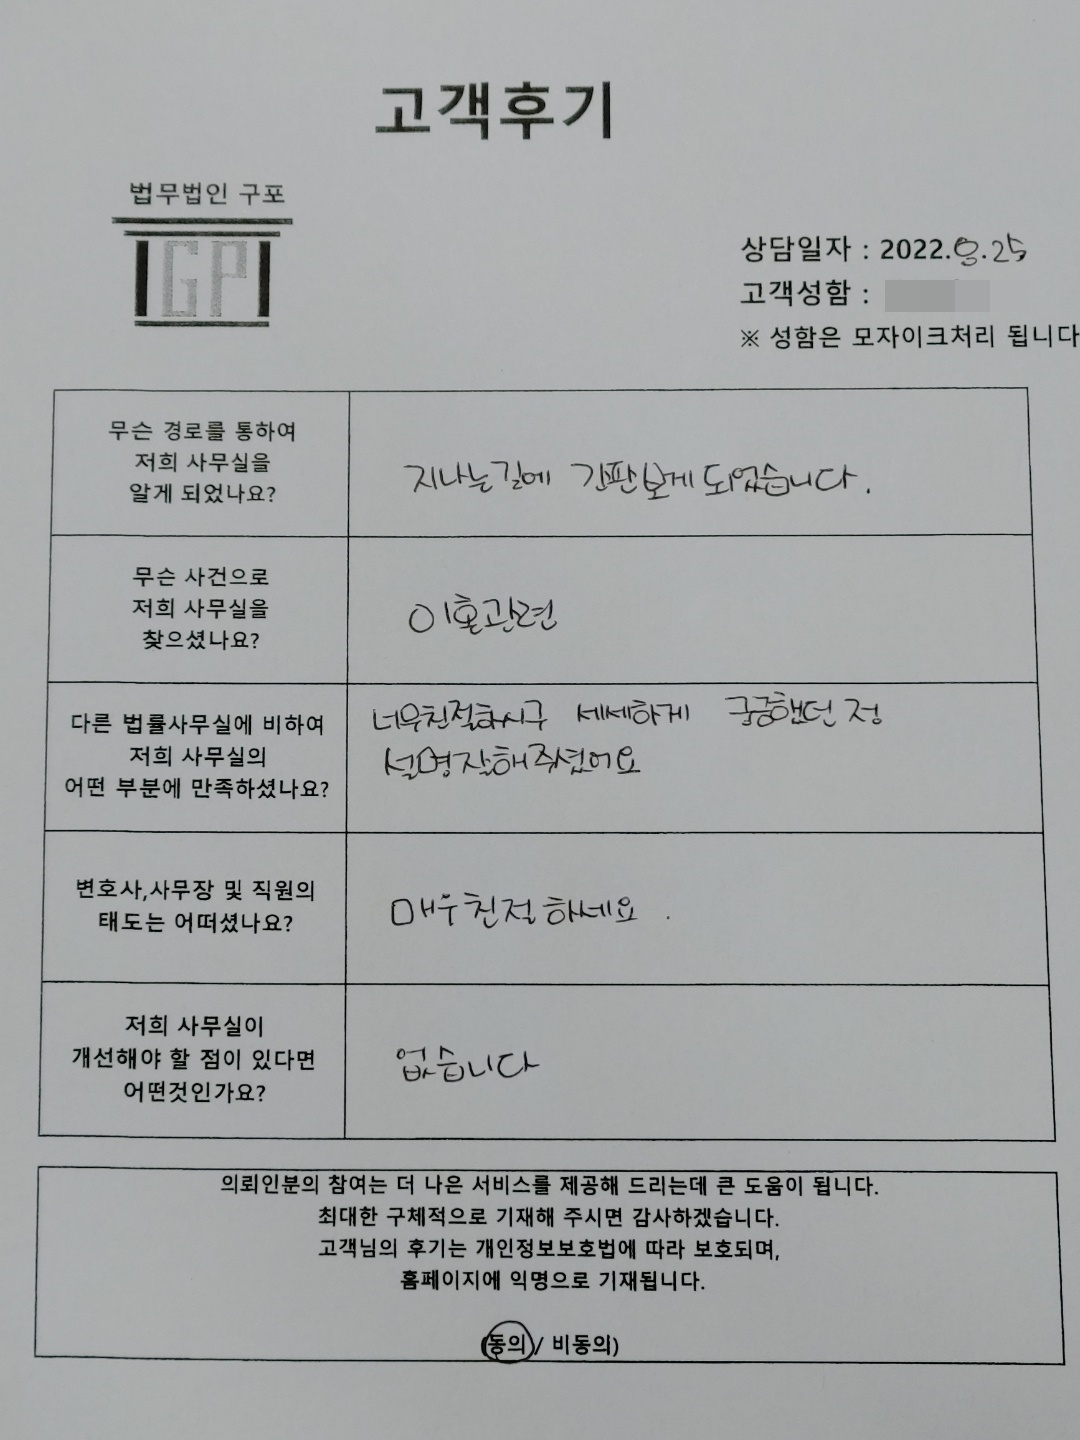 고객후기
법무법인 구포
GP
상담일자 : 2022.8.25
고객성함 :
※ 성함은 모자이크처리 됩니다
무슨 경로를 통하여
저희 사무실을
알게 되었나요?
지나는길에 간판보게되었습니다.
무슨 사건으로
저희 사무실을
찾으셨나요?
이혼관련
다른 법률사무실에 비하여
저희 사무실의
어떤 부분에 만족하셨나요?
너무친절하시구 세세하게 궁금했던 점
설명잘해주셨어요
변호사,사무장 및 직원의
태도는 어떠셨나요?
매우친절하세요.
저희 사무실이
개선해야 할 점이 있다면
어떤것인가요?
없습니다
의뢰인분의 참여는 더 나은 서비스를 제공해 드리는데 큰 도움이 됩니다.
최대한 구체적으로 기재해 주시면 감사하겠습니다.
고객님의 후기는 개인정보보호법에 따라 보호되며,
홈페이지에 익명으로 기재됩니다.
(동의 / 비동의)